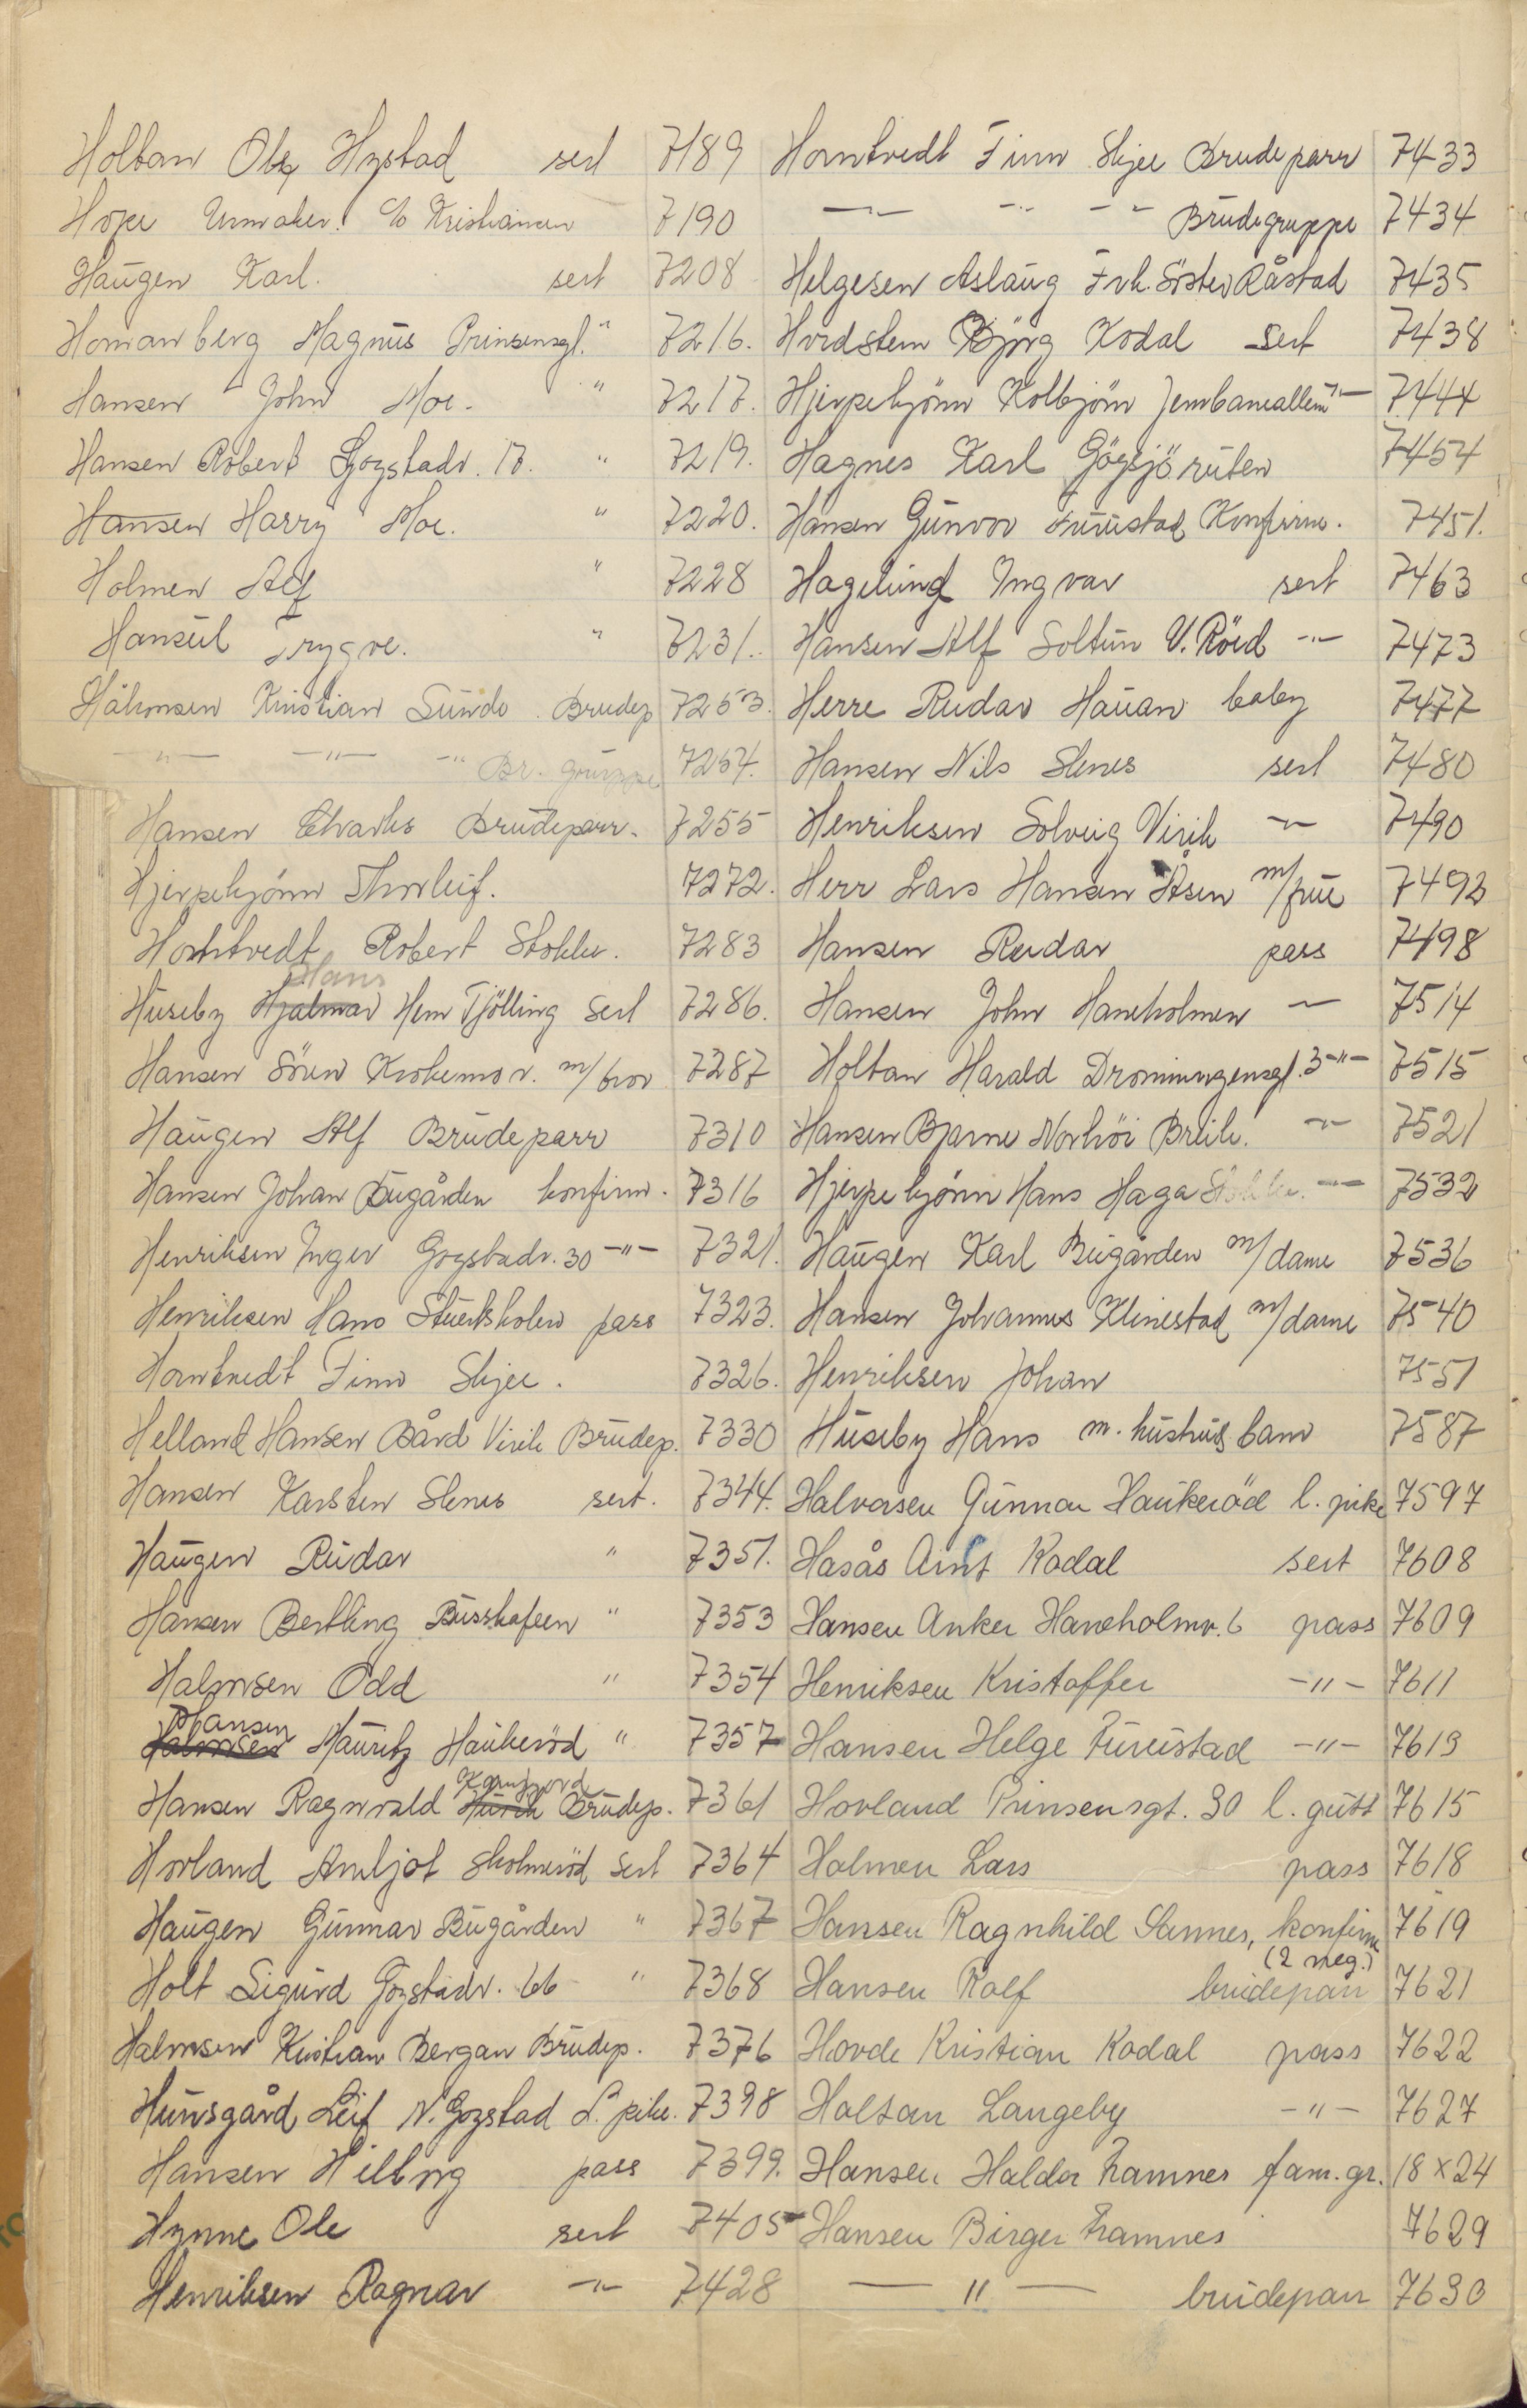 Holtan Olaf Hystad sert 7189
Hope Urmaker c/o Kristiansen 7190
Haugen Karl. sert 7208
Homanberg Magnus Prinsensgt. " 7216.
Hansen John Moe. " 7217.
Hansen Robert Gogstadv. 17. " 7219.
Hansen Harry Moe. " 7220.
Holmen Alf " 7228
Hansul Trygve. " 7231.
Håkonsen Kristian Sundo. Brudep 7253.
-"- -"- -"- Br. gruppe 7254.
Hansen Charles Brudepar. 7255
Hjerpekjønn Thorleif. 7272.
Horntvedt Robert Stokke. 7283
Huseby Hjalmar Hans Hem Tjölling sert 7286.
Hansen Sören Krokemov. m/bror 7287
Haugen Alf Brudeparr 7310
Hansen Johan Bugården konfirm. 7316
Henriksen Inger Gogstadv. 30 -"- 7321.
Henriksen Hans pass 7323.
Horntvedt Finn Skjee. 7326.
Helland Hansen Bård Virik Brudep. 7330
Hansen Karsten Slenes sert. 7344.
Haugen Rudar " 7351.
Hansen Bertling Busskafeen " 7353
Halvorsen Odd " 7354
Halvorsen Hansen Mauritz Haukeröd " 7357
Hansen Ragnvald Brudep. 7361
Hovland Arnljot Skolmeröd sert 7364
Haugen Gunnar Bugården " 7367
Holt Sigurd Gogstadv. 66 " 7368
Halvorsen Kristian Bergan Brudep. 7376
Hunsgård Leif N. Gogstad L. pike. 7398
Hansen Hilborg pass 7399.
Hynne Ole sert 7405
Henriksen Ragnar -"- 7428
Horntvedt Finn Skjee Brudeparr 7433
-"- -"- -"- Brudegruppe 7434
Helgesen Aslaug Frk. Söster Råstad 7435
Hvidsten Björg Kodal sert 7438
Hjerpekjönn Kolbjörn Jernbanealleen -"- 7444
Hagnes Karl Gögsjöruten 7454
Hansen Gunvor Furustad Konfirm. 7451.
Hagelund Ingvar sert 7463
Hansen Alf Soltun V. Röed -"- 7473
Herre Rudar Hauan baby 7477
Hansen Nils Slenes sert 7480
Henriksen Solveig Virik -"- 7490
Herr Lars Hansen Åsen m/frue 7492
Hansen Rudar pass 7498
Hansen John Haneholmen -"- 7514
Holtan Harald Dronningensgt. 3 -"- 7515
Hansen Bjarne Norhöi Breik. -"- 7521
Hjerpekjönn Hans Haga Stokke. -"- 7532
Haugen Karl Bugården m/dame 7536
Hansen Johannes Klinestad m/dame 7540
Henriksen Johan 7551
Huseby Hans m. hustru & barn 7587
Halvorsen Gunnar Haukeröd l. pike 7597
Hasås Arnt Kodal sert 7608
Hansen Anker Haneholmv. 6 pass 7609
Henriksen Kristoffer -"- 7611
Hansen Helge Furustad -"- 7613
Hovland Prinsensgt. 30 l. gutt 7615
Holmen Lars pass 7618
Hansen Ragnhild Sannes, konfirm (2 neg.) 7619
Hansen Rolf brudepar 7621
Hovde Kristian Kodal pass 7622
Holtan Langeby -"- 7627
Hansen Haldor Framnes fam. gr. 18 x 24
Hansen Birger Framnes 7629
-"- brudepar 7630